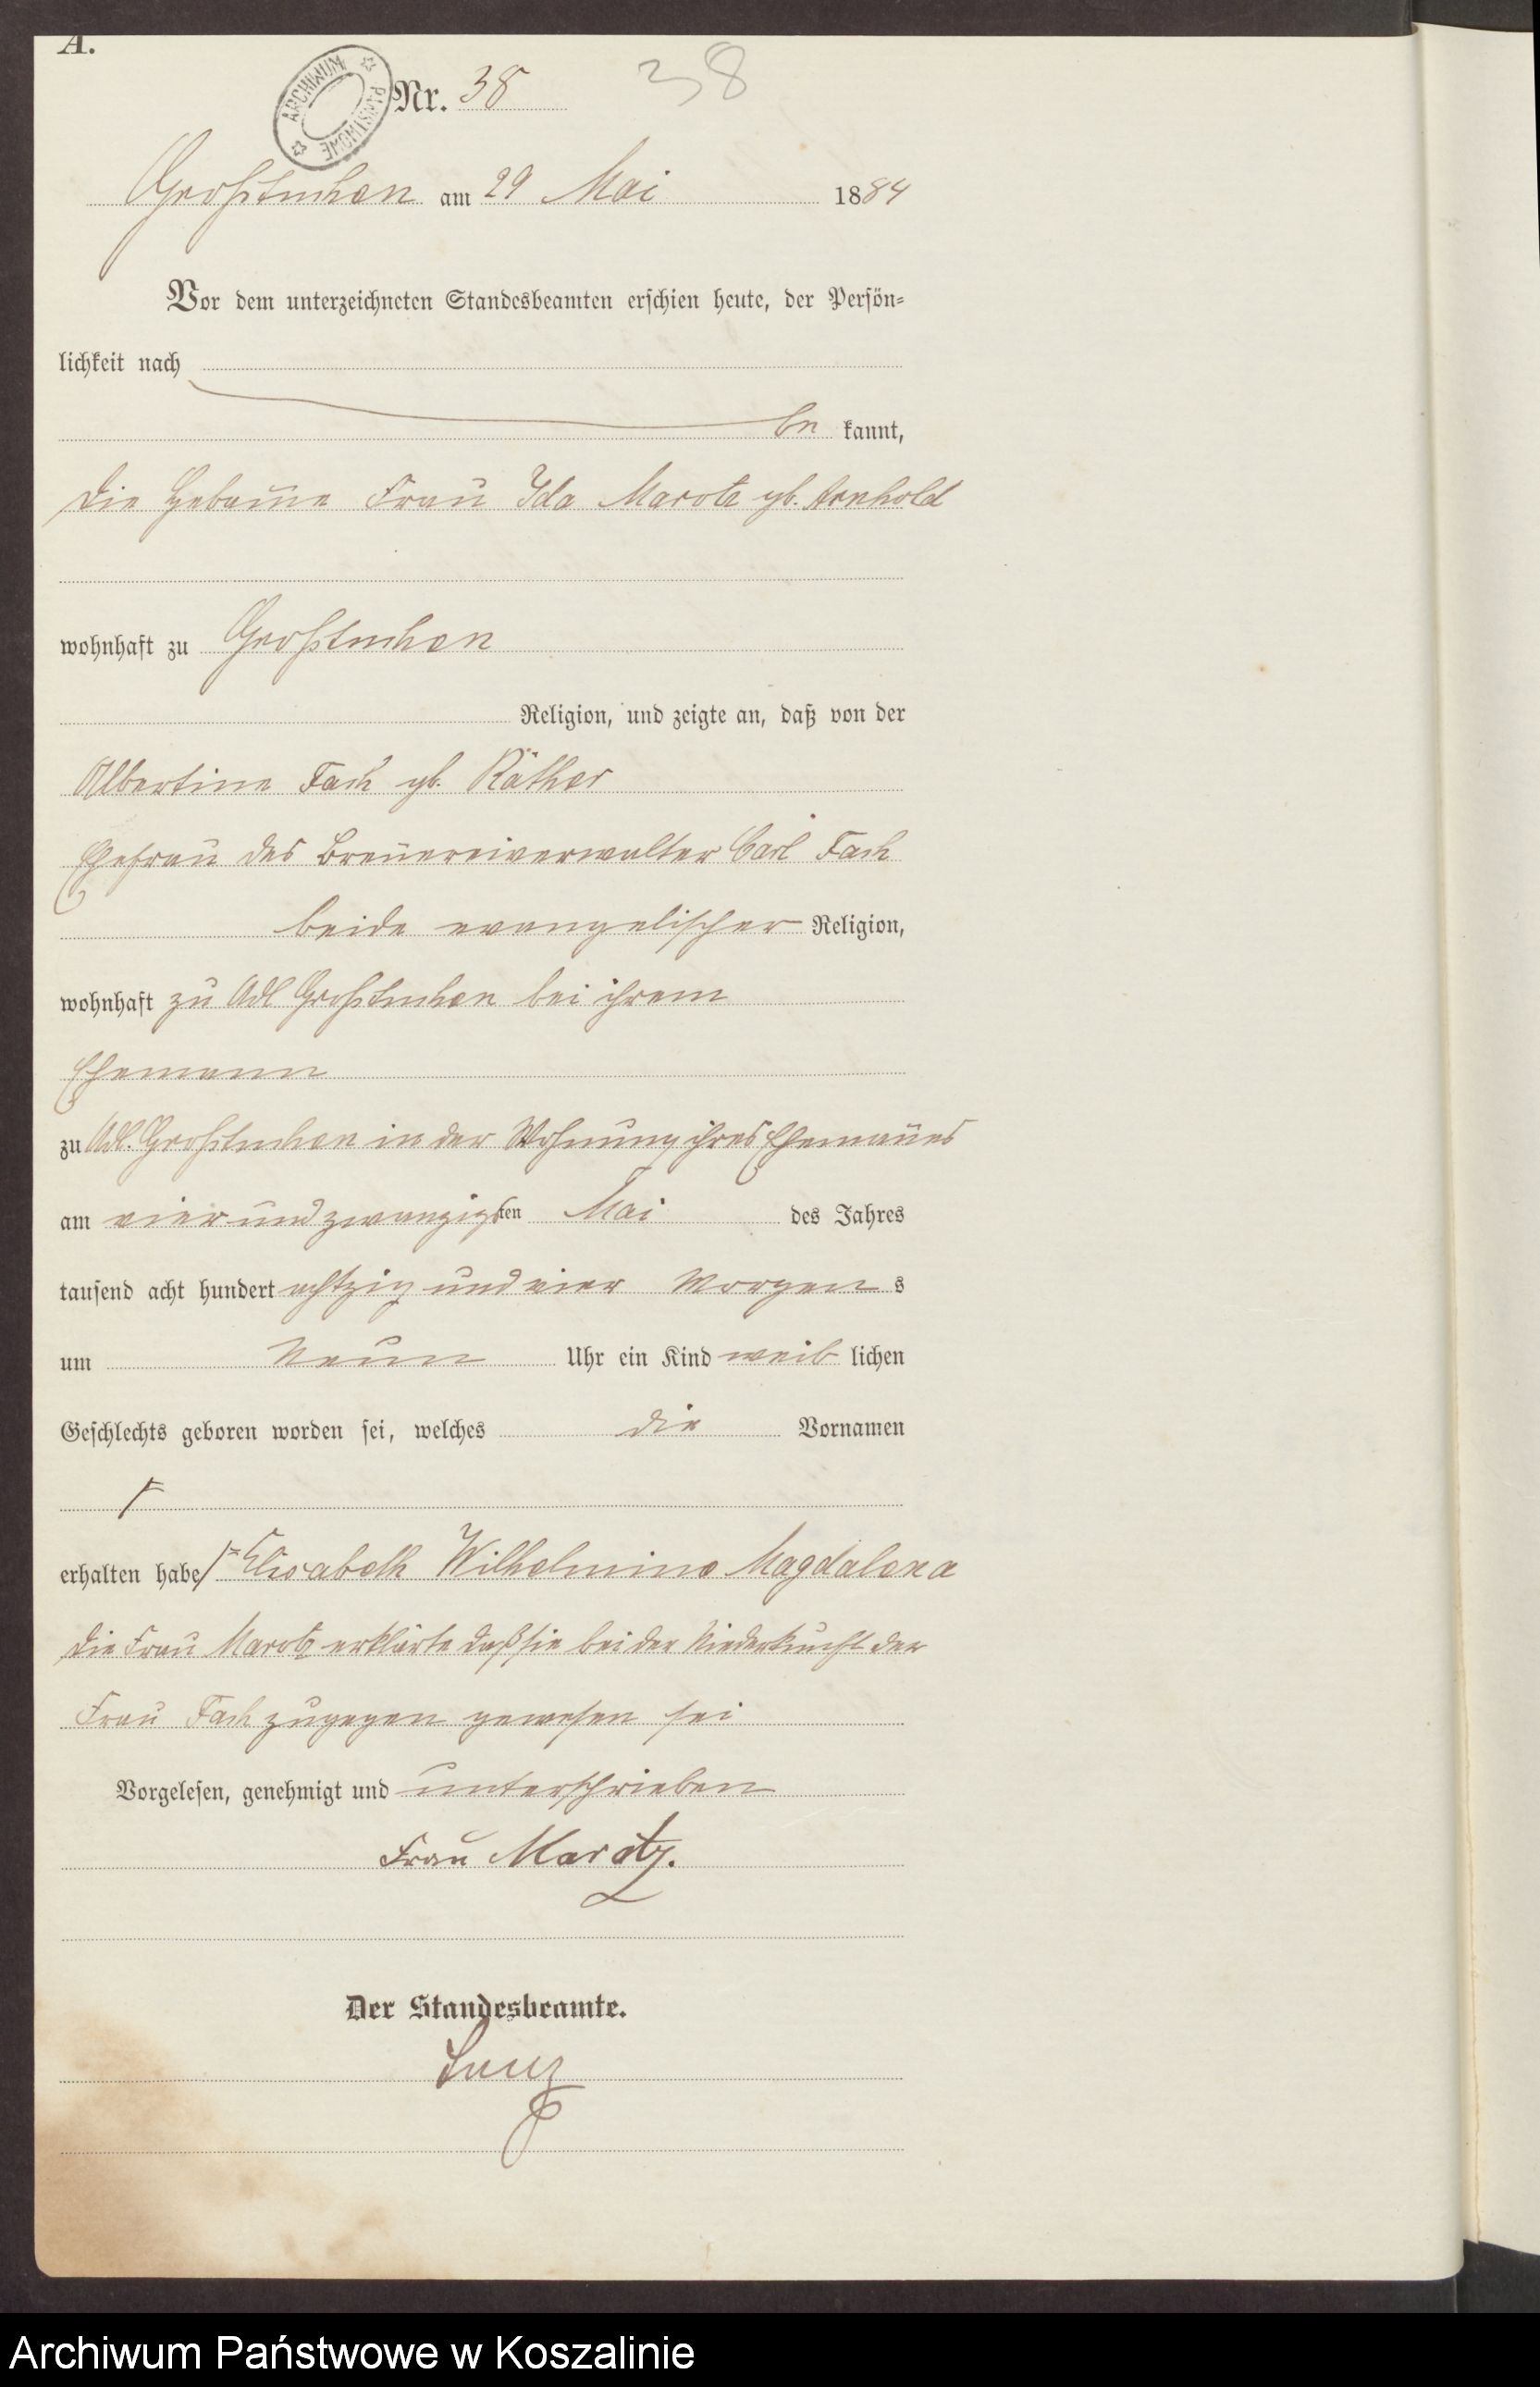 A.
ARCHIWUM PAŃSTWOWE
Nr. 38
38
Großtuchen am 29 Mai 1884
Vor dem unterzeichneten Standesbeamten erschien heute, der Persön-
lichkeit nach
be kannt,
die Hebame Frau Ida Marotz gb. Arnhold
wohnhaft zu Großtuchen
Religion, und zeigte an, daß von der
Albertine Fach gb. Räther
Ehefrau des Brauereiverwalter Carl Fach
beide evangelischer Religion,
wohnhaft zu Adl Großtuchen bei ihrem
Ehemann
zu Adl. Großtuchen in der Wohnung ihres Ehemanes
am vier und zwanzigsten Mai des Jahres
tausend acht hundert achtzig und vier Morgen s
um Neun Uhr ein Kind weib lichen
Geschlechts geboren worden sei, welches die Vornamen
erhalten habe Elisabeth Wilhelmine Magdalena
die Frau Marotz erklärte daß sie bei der Niederkunft der
Frau Fach zugegen gewesen sei
Vorgelesen, genehmigt und unterschrieben
Frau Marotz.
Der Standesbeamte.
Archiwum Państwowe w Koszalinie